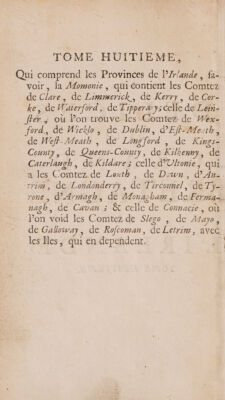 TOME HUITIEME,
Qui comprend les Provinces de l'Irlande, sa-
voir, la Momonie, qui contient les Comtez
de Clare, de Limmerick, de Kerry, de Cor-
ke, de Waterford, de Tipperay; celle de Lein-
ster, où l'on trouve les Comtez de Wex-
ford, de Wicklo, de Dublin, d'Est-Meath,
de West-Meath, de Longford, de Kings-
County, de Queens-County, de Kilkenny, de
Caterlaugh, de Kildare; celle d'Ultonie, qui
a les Comtez de Louth, de Down, d'An-
trim, de Londonderry, de Tirconnel, de Ty-
rone, d'Armagh, de Monagham, de Ferma-
nagh, de Cavan; & celle de Connacie, où
l'on void les Comtez de Slego, de Mayo,
de Galloway, de Roscoman, de Letrim, avec
les Iles, qui en dependent.